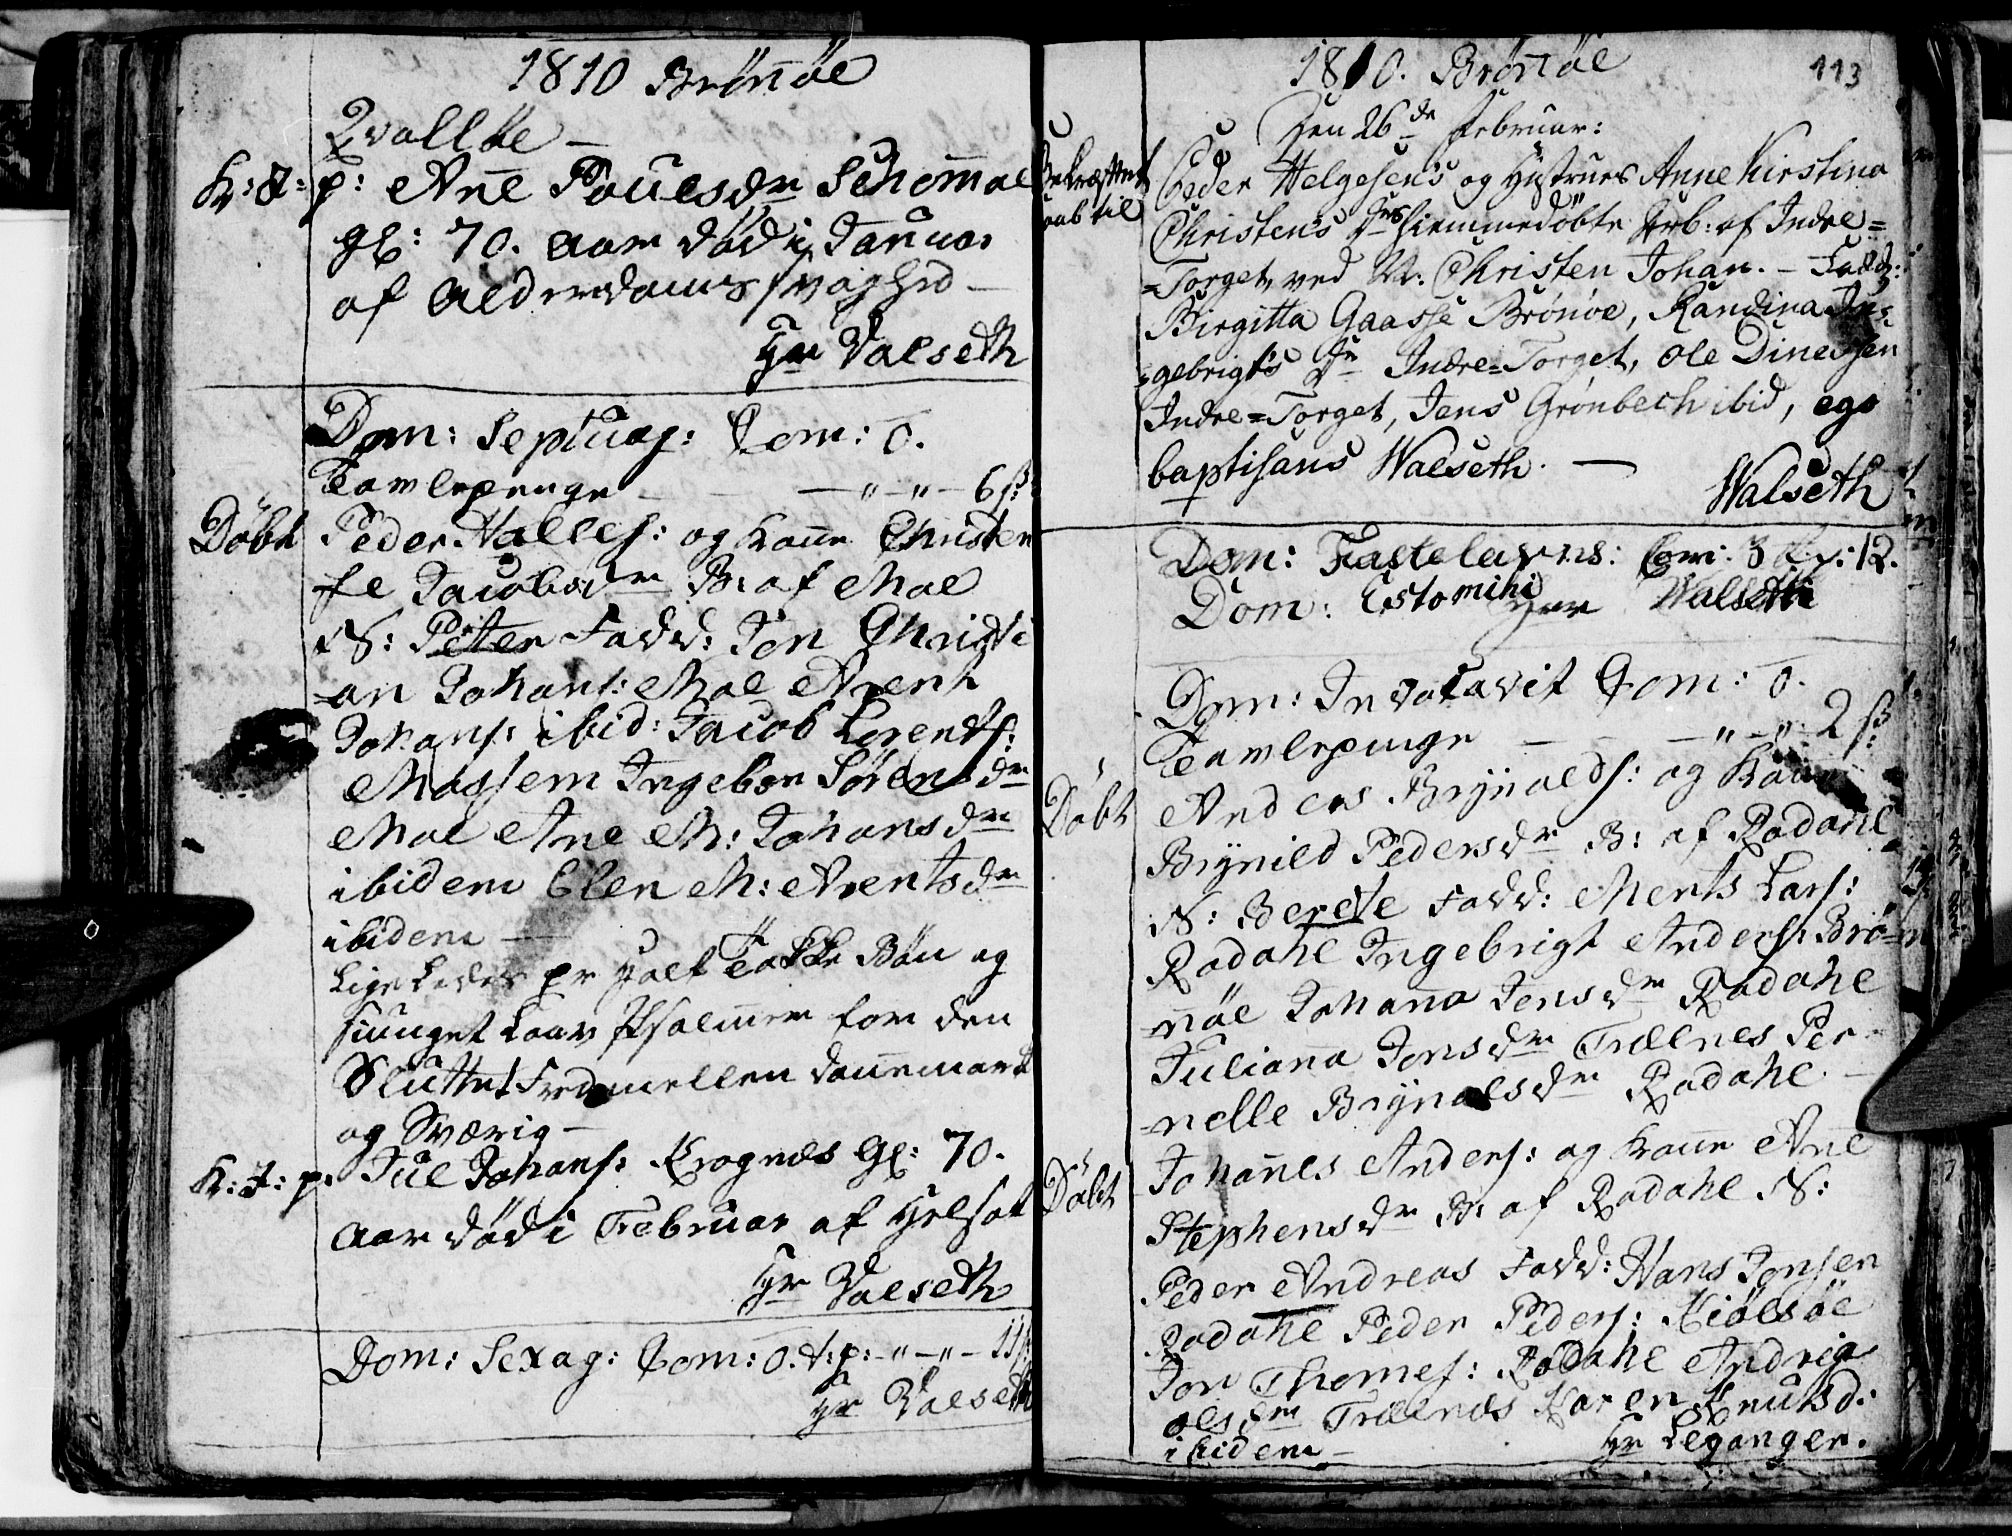 1810 Brönöe
Qvalløe —
K: J: p: Ane Pouelsdr Schomoe
gl: 70. aar död i Januar
af Alderdoms svaghed —
Hr Valseth
Dom: Septuag: Com: 0.
Tavlepenge — — „ — „ — 6 ß:
Döbt Peder Halles: og Kone Christen
se Jacobsdr B: af Moe
N: Peter Fadd: Jon Christi
an Johans: Moe Arent
Johans: ibid: Jacob Lorents:
Mossem Ingebor Sörensdr
Moe Ane M: Johansdr
ibidem Elen M: Arentsdr
ibidem —
Ligeledes er holt Takke Bön og
siunget Lov Psalmer for den
Sluttet Fred mellem Danemark
og Sværig —
K: J: p. Jul Johans: Krognes gl: 70.
aar död i Februar af Helsot
Hr Valseth
Dom: Sexag: Com: 0. t: p: — „ — „ — 11 ß
Hr Valseth
1810. Brönöe 113
Den 26de Februar:
Bekræftet Peder Helgesens og Hustrues Anne Kirstina
Daab til Christens Drs hiemmedöbte Brb: af Indre=
=Torget, ved N. Christen Johan. — Fadd:
Birgitta Gaasse Brönöe, Randina In=
=gebrigts Dr Indre=Torget, Ole Dinessen
Indre=Torget, Jens Grönbech ibid, ego
baptisans Walseth. —
Walseth
Dom: Fastelavns: Com: 3 t: p: 12.
Dom: Estomihi Herr Walseth
Dom: Invocavit Com: 0.
Tavlepenge — — — „ — „ 2 ß:
Döbt Anders Brynolds: og Kone
Brynild Pedersdr B: af Rodahl
N: Berete Fadd: Ments Lars:
Rodahl Ingebrigt Anders: Brö=
nöe Johana Jensdr Rodahl
Juliana Jonsdr Trælnes Per=
nelle Brynolsdr Rodahl. —
Döbt Johannes Anders: og Kone Ane
Stephensdr B: af Rodahl N:
Peder Andreas Fadd: Hans Jonsen
Rodahl Peder Peders: Kiölsöe
Jon Thomes: Rodahl Andrea
Olsdr Trælnes Karen Knutsd:
ibidem — Hr Leganger.